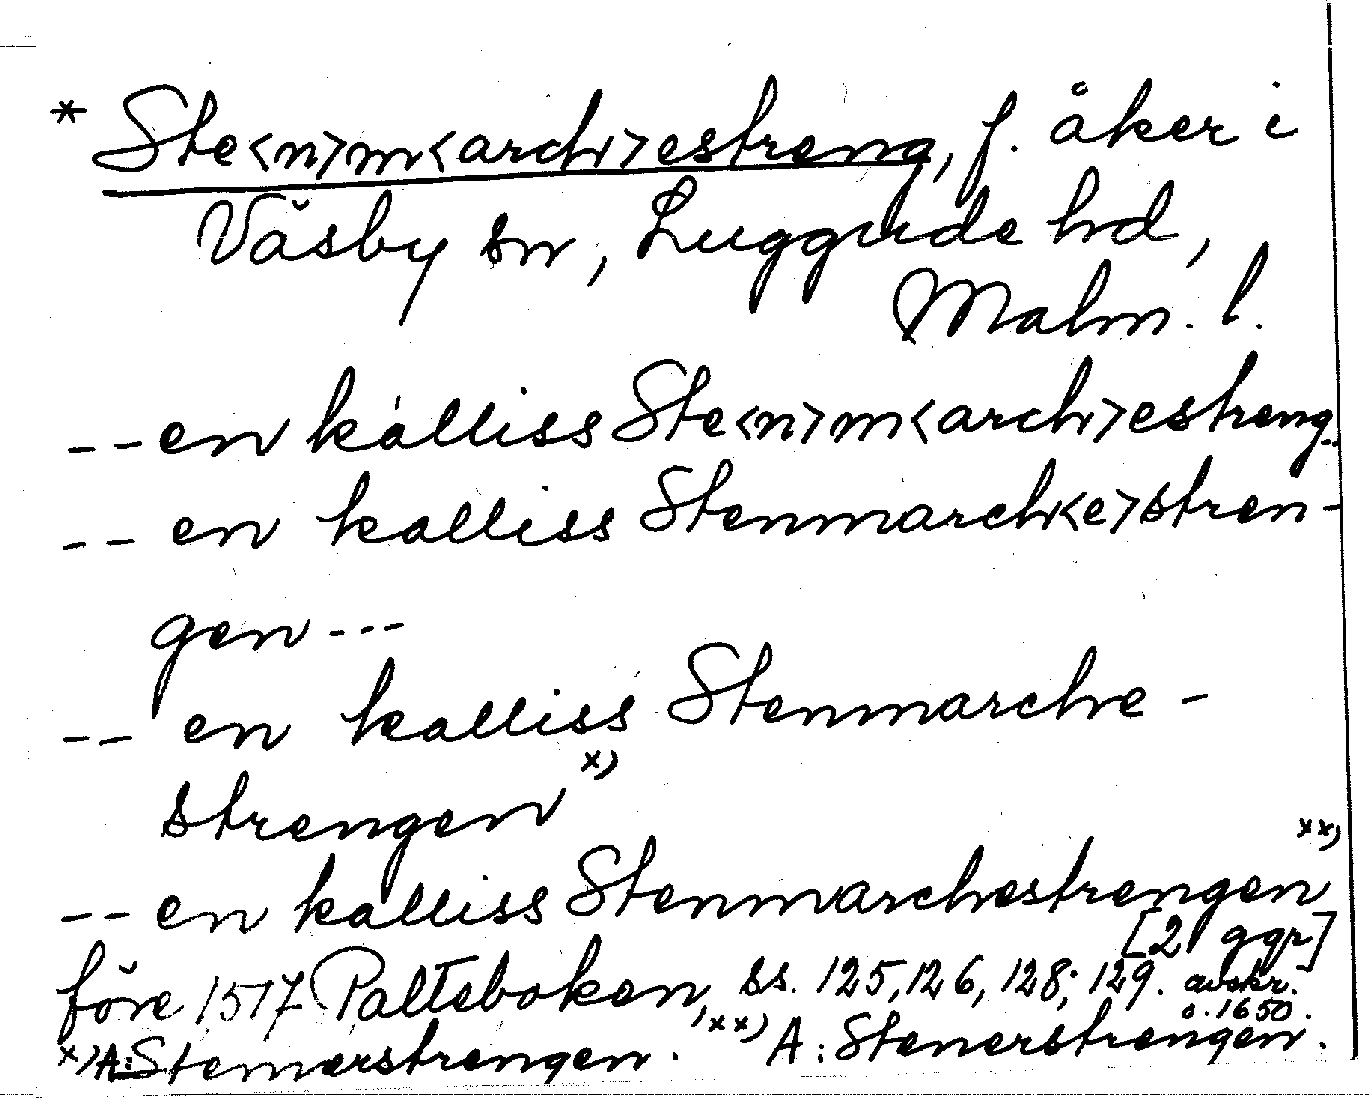 * Ste<n>m<arch>estreng, f. åker i
Väsby sn, Luggude hd,
Malm. l.
-- en kalliss Ste<n>m<arch>estreng..
-- en kalliss Stenmarch<e>stren-
gen ---
-- en kalliss Stenmarche-
strengen x)
-- en kalliss Stenmarchestrengen xx)
[2 ggr]
före 1517 Paltebokan, ss. 125, 126, 128, 129. avskr.
o. 1650.
x) A: Stemerstrengen. xx) A: Stenerstrengen.